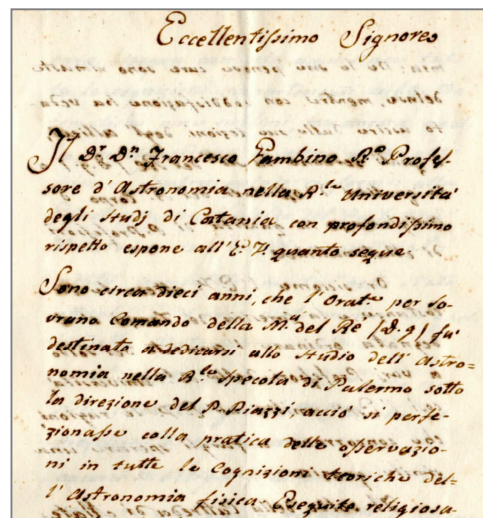 Eccellentissimo Signore
Il Dr. Dn. Francesco Gambino R.o Profes-
sore d'Astronomia nella R.le Università
degli Studj di Catania con profondissimo
rispetto espone all'E. V. quanto segue
Sono circa dieci anni, che l'Orat.e per So-
vrano Comando della M.tà del Re (D. g.) fu'
destinato a dedicarsi allo studio dell'Astro=
nomia nella R.le Specola di Palermo sotto
la direzione del P. Piazzi, acciò si perfe-
zionasse colla pratica delle osservazio-
ni in tutte le Cognizioni teoriche del-
l'Astronomia fisica. Eseguito religiosa